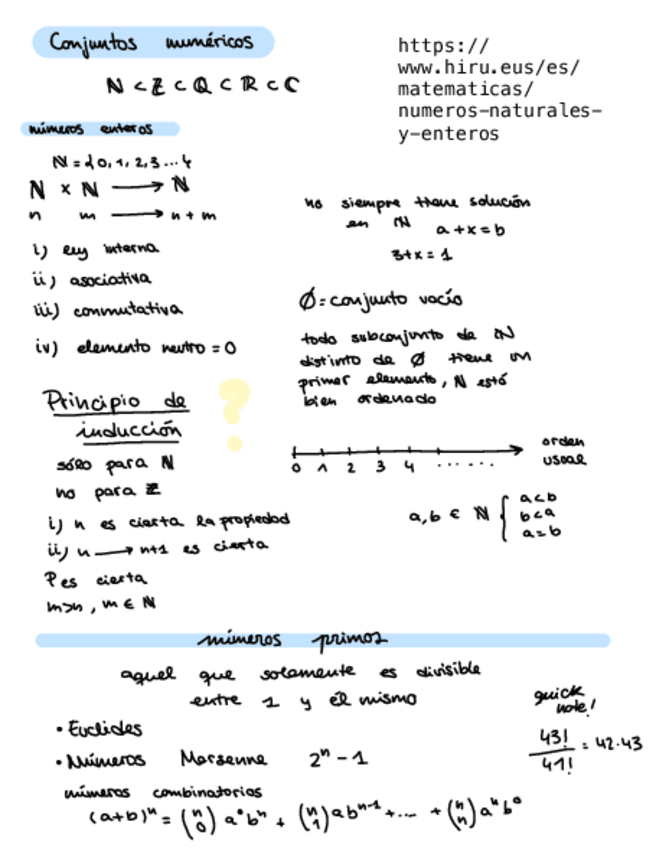 Conjuntos numéricos
ℕ < ℤ ⊂ ℚ ⊂ ℝ ⊂ ℂ
https://
www.hiru.eus/es/
matematicas/
numeros-naturales-
y-enteros
números enteros
ℕ = {0, 1, 2, 3 ... }
ℕ x ℕ → ℕ
n m → n + m
i) ley interna
ii) asociativa
iii) conmutativa
iv) elemento neutro = 0
no siempre tiene solución
en ℕ a + x = b
3 + x = 1
Ø = conjunto vacío
todo subconjunto de ℕ
distinto de Ø tiene un
primer elemento, ℕ está
bien ordenado
Principio de
inducción
?
sólo para ℕ
no para ℤ
i) n es cierta la propiedad
ii) n → n+1 es cierta
P es cierta
m>n, m ∈ ℕ
0 1 2 3 4 ......
orden
usual
a, b ∈ ℕ { a<b
b<a
a=b
números primos
aquel que solamente es divisible
entre 1 y él mismo
• Euclides
• Números Mersenne 2ⁿ - 1
quick
note!
43!/41! = 42·43
números combinatorios
(a+b)ⁿ = (n 0) a⁰bⁿ + (n 1) abⁿ⁻¹ + ... + (n n) aⁿb⁰